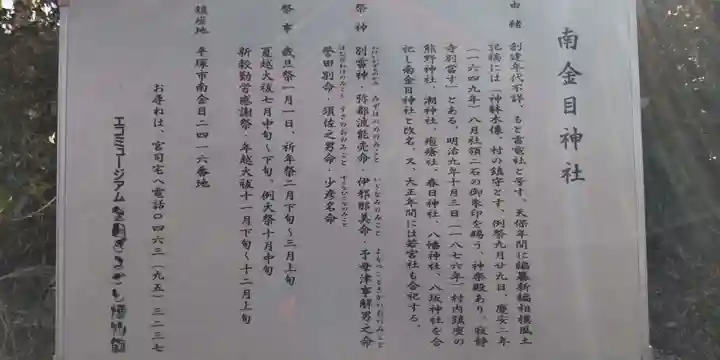 南金目神社
由緒 創建年代不詳、もと雷電社と号す。天保年間に編纂新編相模風土
記稿には「神躰木像、村の鎮守とす、例祭九月廿九日、慶安二年
(一六四九年)八月社領二石の御朱印を賜う、神楽殿あり、寂静
寺別當す」とある。明治九年十月三日(一八七六年)村内鎮座の
熊野神社、潮神社、疱瘡社、春日神社、八幡神社、八坂神社を合
祀し南金目神社と改名。又、大正年間には若宮社も合祀する。
祭神 別雷神・弥都波能売命・伊邪那美命・予母津事解男之命
誉田別命・須佐之男命・少彦名命
祭事 歳旦祭一月一日、祈年祭二月下旬〜三月上旬
夏越大祓七月中旬〜下旬、例大祭十月中旬
新穀勤労感謝祭・年越大祓十一月下旬〜十二月上旬
鎮座地 平塚市南金目二四一六番地
お尋ねは、宮司宅へ電話〇四六三(九五)三二三七
エコミュージアム